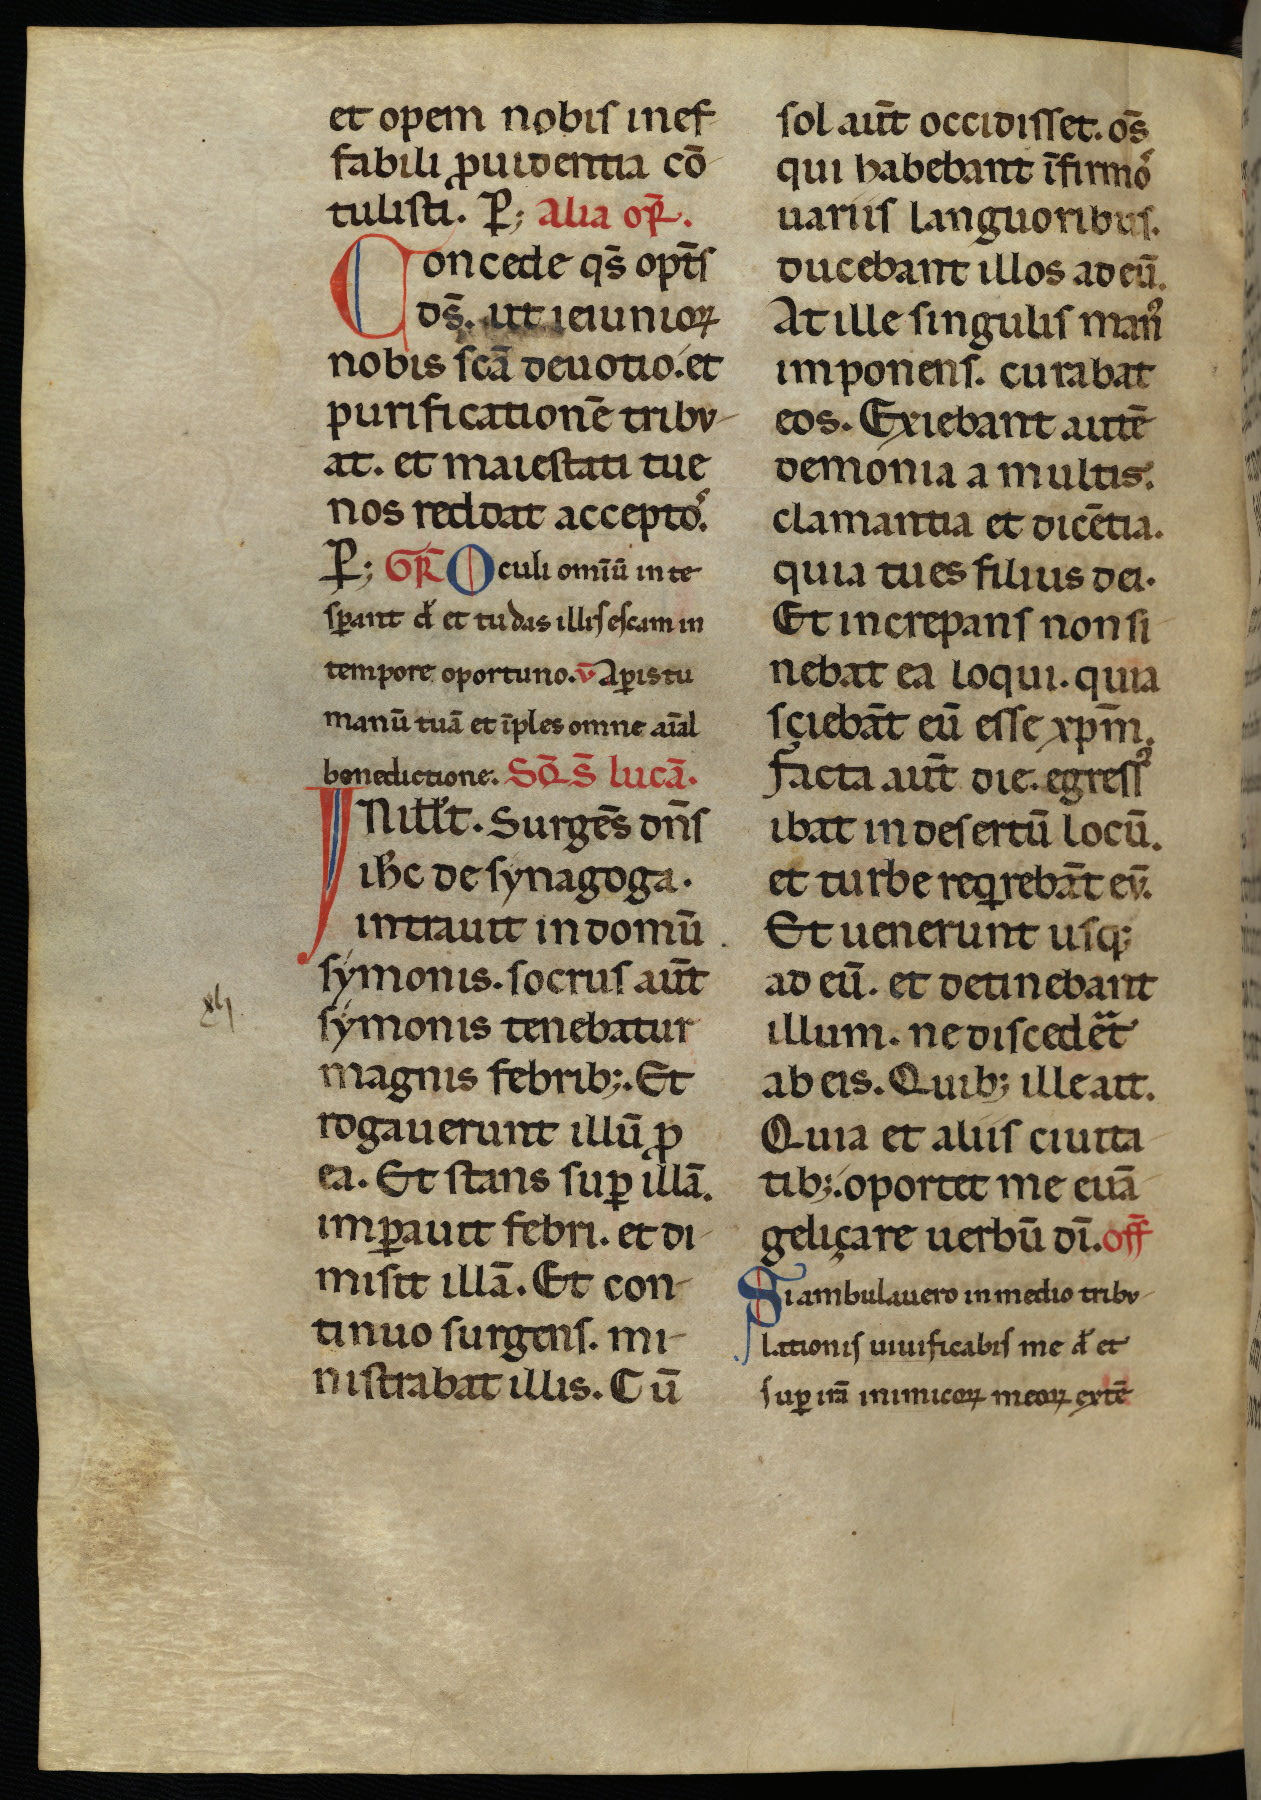 et opem nobis inef
fabili ꝓuidentia cō
tulisti. P̄; Alia or̄.
Concede qs̄ opt̄s
ds̄. ut ieiunioꝝ
nobis scā deuotio. et
purificationē tribu
at. et maiestati tue
nos reddat acceptoᷤ.
P̄; GR̄ Oculi omīū in te
sꝑant dn̄e et tu das illis escam in
tempore oportuno. v̄ Aꝑis tu
manū tuā et īples omne aīal
benedictione. SC̄D S̄ lucā.
IN ill̄ t. Surgēs dn̄s
ih̄c de synagoga.
intrauit in domū
symonis. socrus aūt
symonis tenebatur
magnis febrib;. Et
rogauerunt illū ꝓ
ea. Et stans suꝑ illā.
imꝑauit febri. et di
misit illā. Et con
tinuo surgens. mi
nistrabat illis. Cū
sol aūt occidisset. om̄s
qui habebant īfirmoᷤ
uariis languoribus.
ducebant illos ad eū.
At ille singulis man᷒
imponens. curabat
eos. Exiebant autē
demonia a multis.
clamantia et dicētia.
quia tu es filius dei.
Et increpans non si
nebat ea loqui. quia
sçiebāt eū esse xp̄m.
Facta aūt die. egress᷒
ibat in desertū locū.
et turbe reqͥrebāt eū.
Et uenerunt usq;
ad eū. et detinebant
illum. ne discedeᷓt
ab eis. Quib; ille ait.
Quia et aliis ciuita
tib;. oportet me euā
geliçare uerbū dī. off̄
Si ambulauero in medio tribu
lationis uiuificabis me dn̄e et
suꝑ irā inimicoꝝ meoꝝ extē